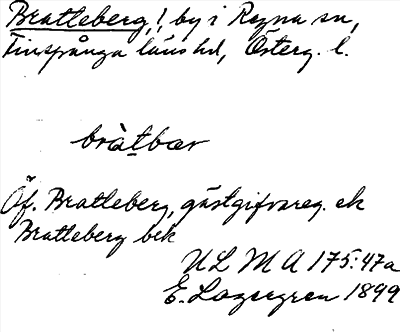 Bratteberg,! by i Regna sn,
Finspånga läns hd, Österg. l.
bràtbær
Öf. Bratteberg, gästgifvareg. ek
Bratteberg bek
ULMA 175:47a
E. Lagergren 1899